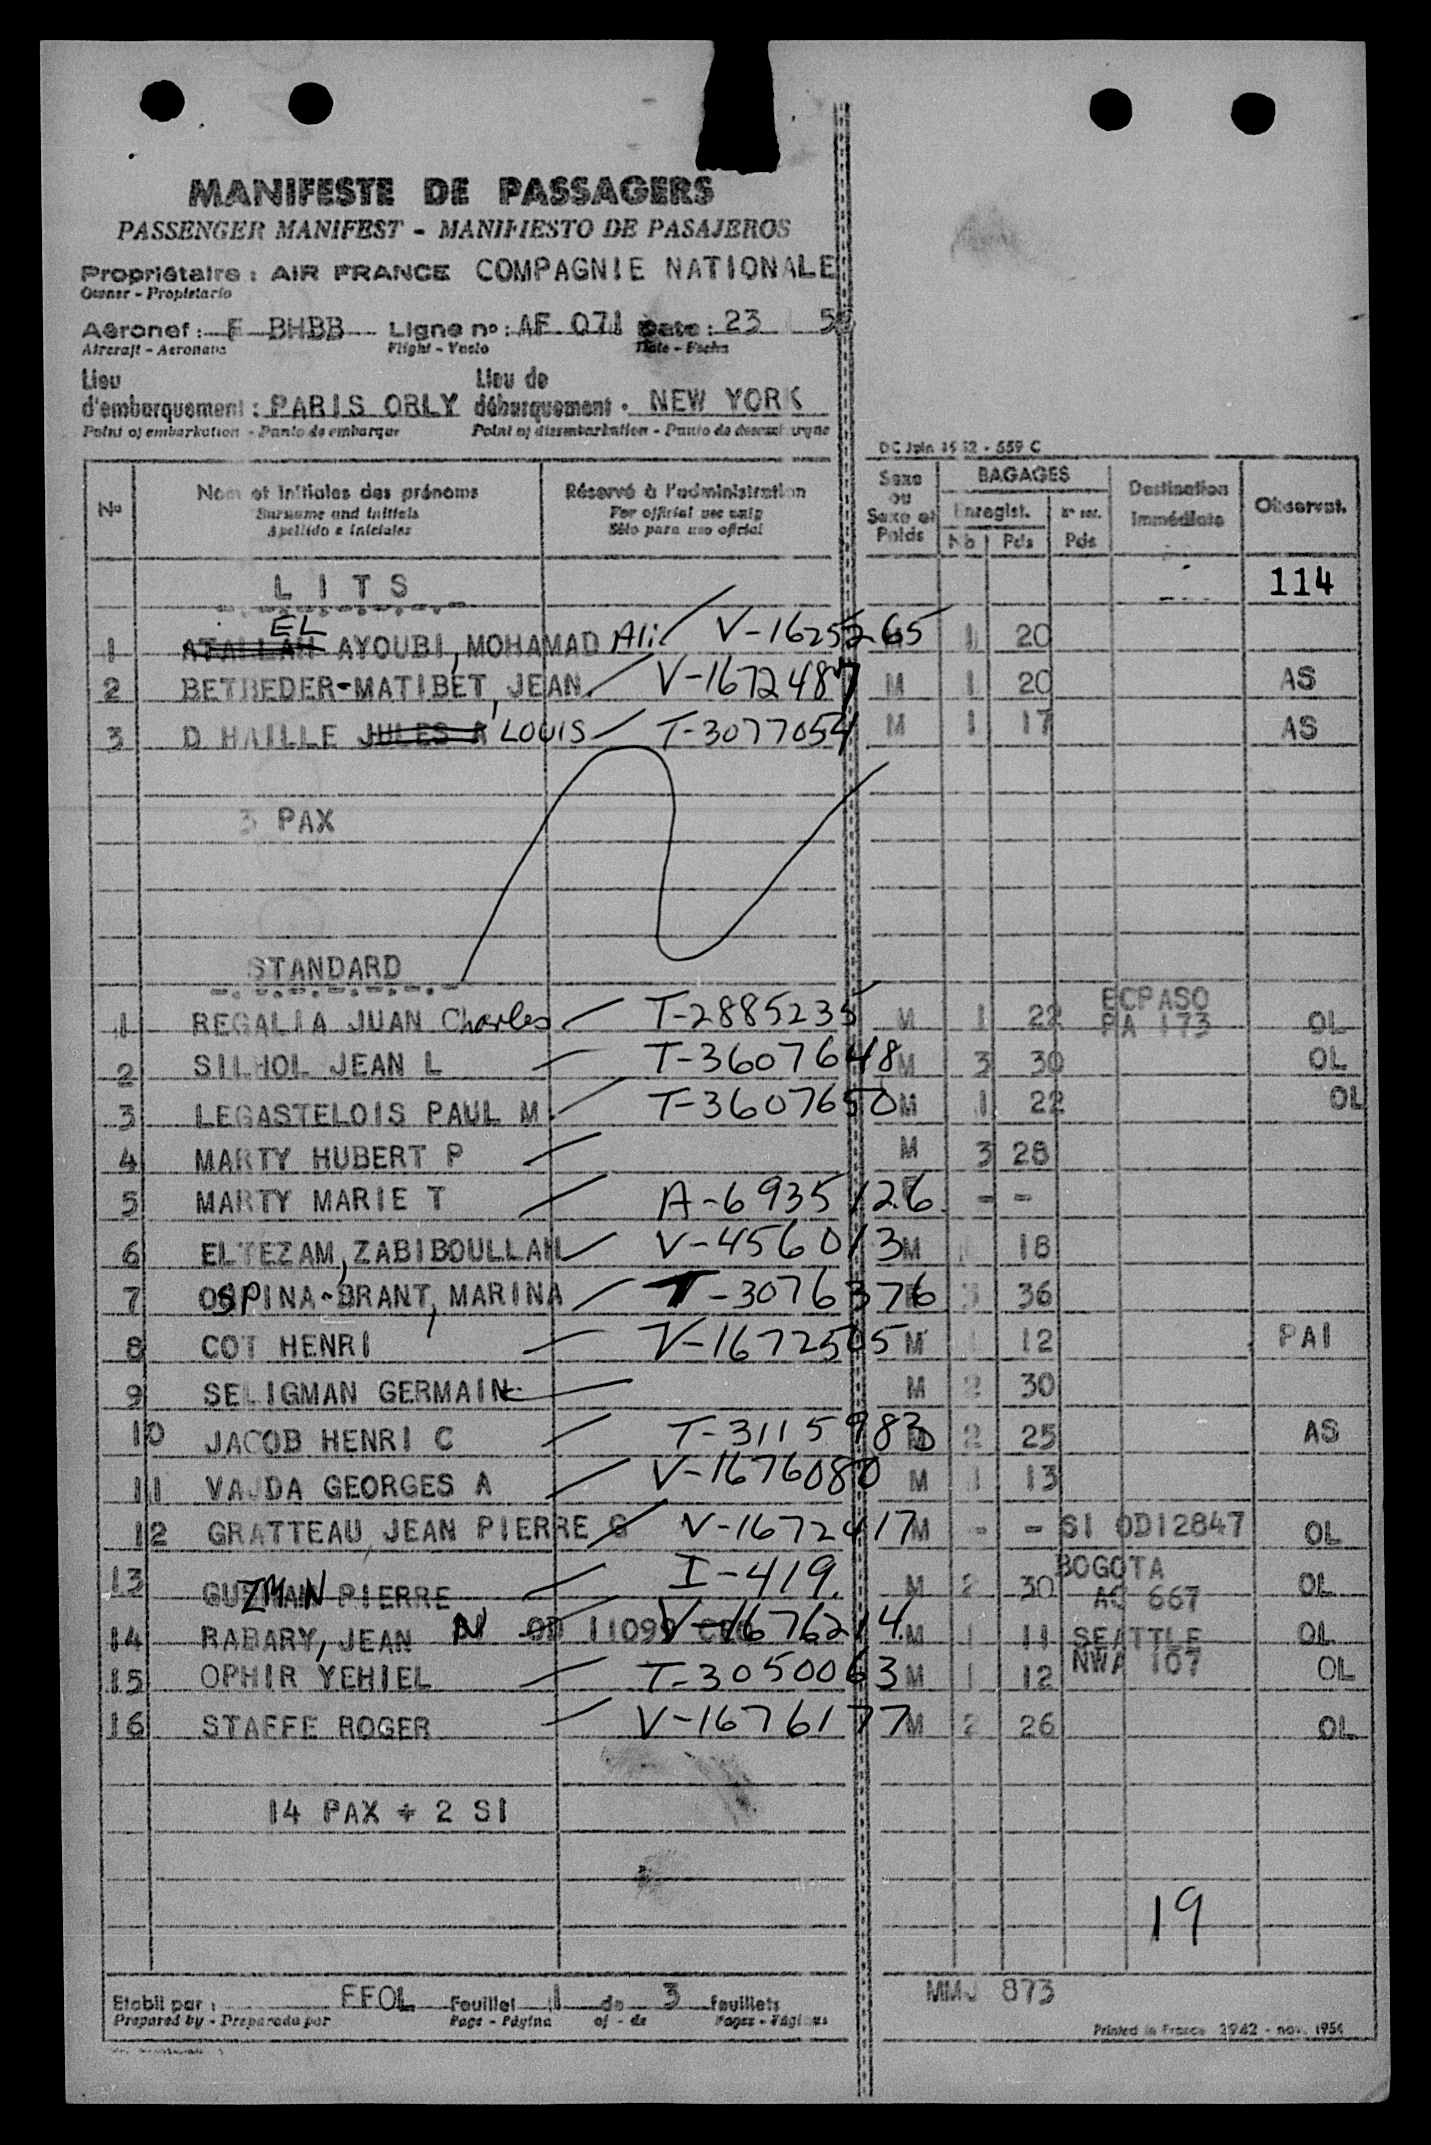 MANIFESTE DE PASSAGERS
PASSENGER MANIFEST - MANIFIESTO DE PASAJEROS
Propriétaire : AIR FRANCE COMPAGNIE NATIONALE
Owner - Propietario
Aéronef : F BHBB Ligne no : AF 071 Date : 23 5
Aircraft - Aeronave Flight - Vuelo Date - Fecha
Lieu d'embarquement : PARIS ORLY Lieu de débarquement : NEW YORK
Point of embarkation - Punto de embarque Point of disembarkation - Punto de desembarque
DC Juin 1952 - 559 C
No Nom et initiales des prénoms Réservé à l'administration Sexe ou Sexe et Poids BAGAGES Destination Immédiate Observat.
Surname and initials For official use only Enregist.
Apellido e iniciales Sólo para uso oficial Nb Pds Pds
L I T S 114
1 ATALLAH EL AYOUBI, MOHAMAD Ali V-1625265 1 20
2 BETBEDER-MATIBET, JEAN V-1672487 M 1 20 AS
3 D HAILLE JULES A LOUIS T-3077054 M 1 17 AS
3 PAX
STANDARD
1 REGALIA JUAN Charles T-2885235 M 1 22 ECPASO PA 173 OL
2 SILHOL JEAN L T-3607648 M 3 30 OL
3 LEGASTELOIS PAUL M T-3607650 M 1 22 OL
4 MARTY HUBERT P M 3 28
5 MARTY MARIE T A-6935126 - -
6 ELTEZAM, ZABIBOULLAH V-456013 M 18
7 OSPINA-BRANT, MARINA T-3076376 3 36
8 COT HENRI V-1672505 M 1 12 PAI
9 SELIGMAN GERMAIN M 2 30
10 JACOB HENRI C T-3115983 2 25 AS
11 VAJDA GEORGES A V-1676080 M 1 13
12 GRATTEAU, JEAN PIERRE G V-1672417 M - - SI OD12847 OL
13 GUZMAN PIERRE I-419. M 2 30 BOGOTA AC 667 OL
14 RABARY, JEAN N OD 11099 V-1676214 M 1 11 SEATTLE NWA 107 OL
15 OPHIR YEHIEL T-3050063 M 1 12 OL
16 STAFFE ROGER V-1676177 M 2 26 OL
14 PAX + 2 SI
19
Etabli par : FFOL Feuillet 1 de 3 feuillets MMJ 873
Prepared by - Preparado por Page - Página of - de Pages - Páginas
Printed in France 2942 - nov. 1954